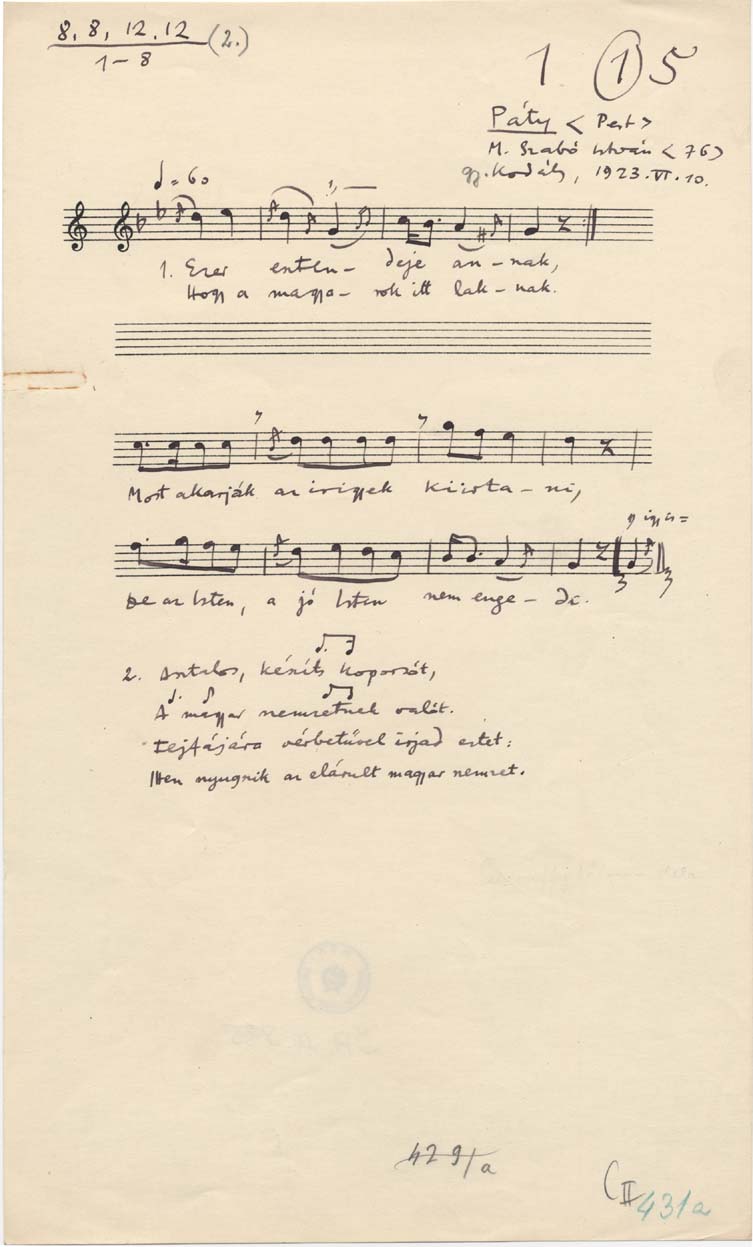 8, 8, 12, 12 (2.)
1–8
1 1 5
Páty < Pest >
M. Szabó István < 76 >
gy. Kodály, 1923. VI. 10.
= 60
1. Ezer eszten- deje an-nak,
Hogy a magya- rok itt lak-nak.
Most akarják az irigyek kiirta-ni,
így is =
De az Isten, a jó Isten nem enge-di.
2. Asztalos, készíts koporsót,
A magyar nemzetnek valót.
Fejfájára vérbetűvel írjad eztet:
Itten nyugszik az elárult magyar nemzet.
429/a
C II 431a